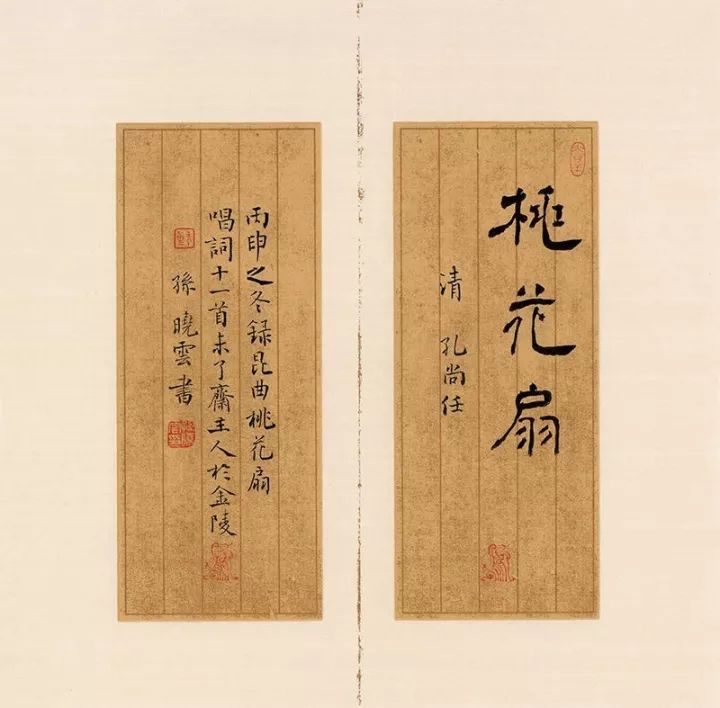 桃花扇
清 孔尚任
丙申之冬録昆曲桃花扇
唱詞十一首未了齋主人於金陵
孫曉雲書